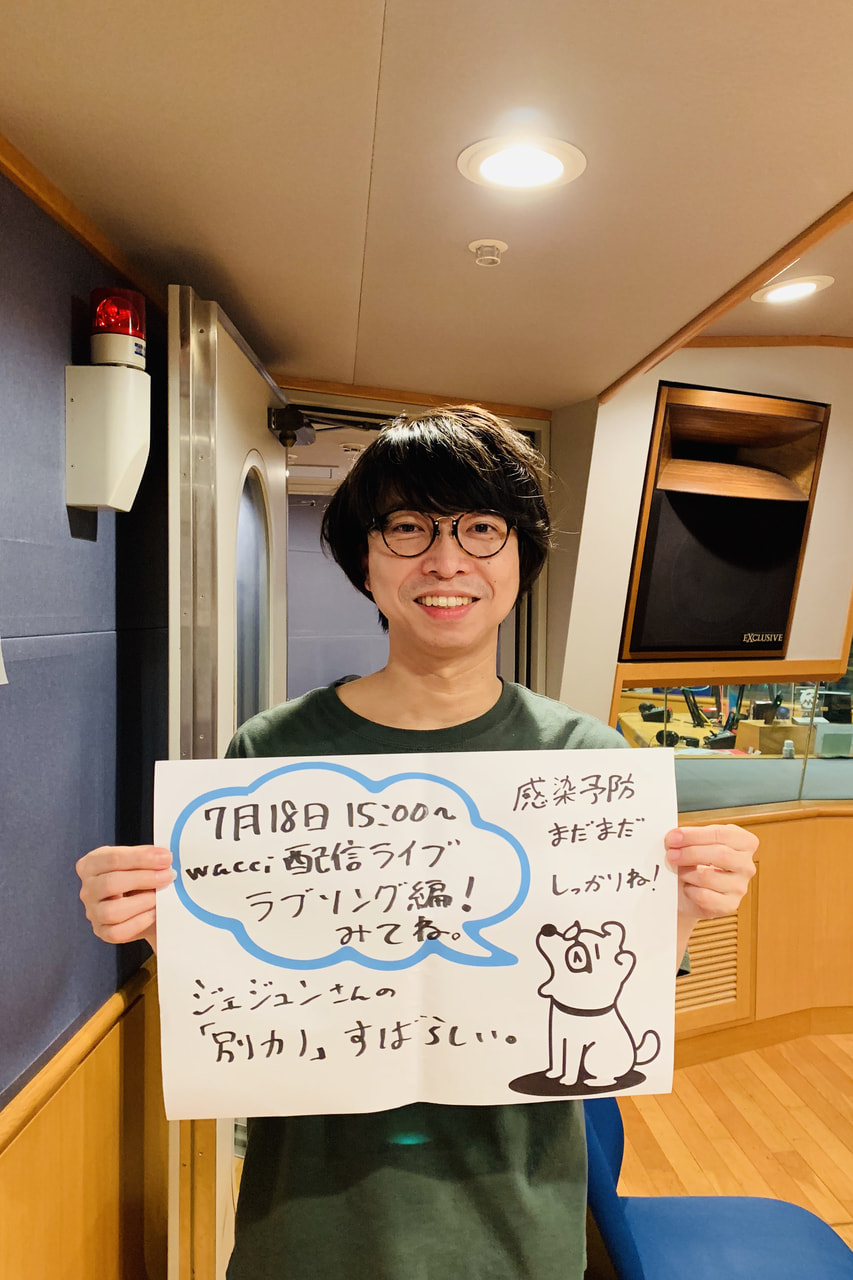 7月18日 15:00〜
wacci 配信ライブ
ラブソング編!
みてね。
感染予防
まだまだ
しっかりね!
ジェジュンさんの
「別カノ」すばらしい。
EXCLUSIVE